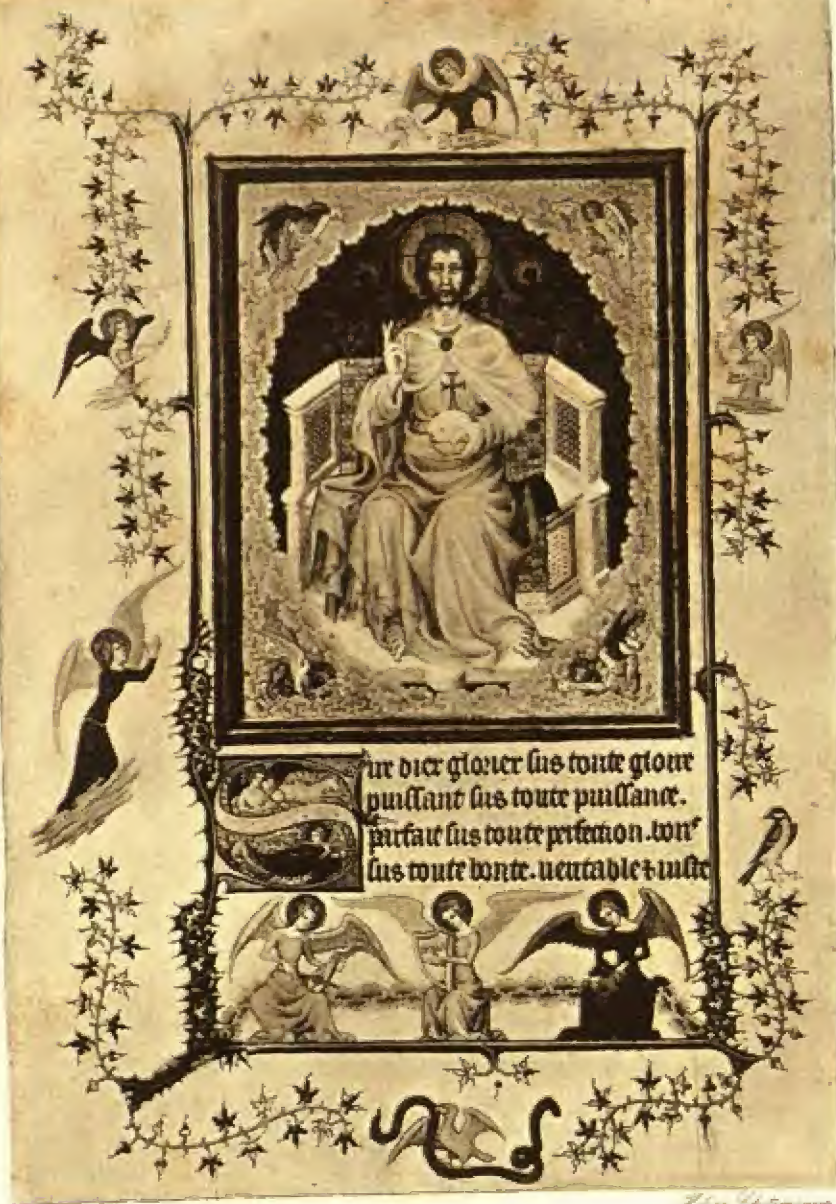 Sire diex glorier sus toute gloire
puissant sus toute puissance.
parfait sus toute perfection. bons
sus toute bonte. ueritable & iuste